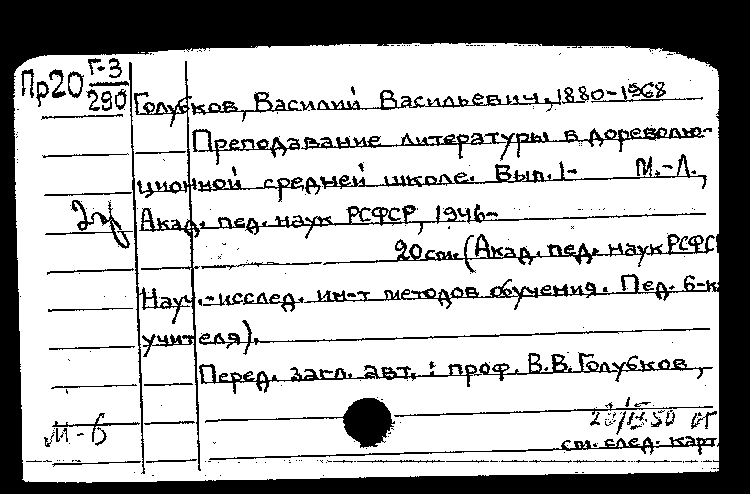 Пр20 Г-3
290
Голубков, Василий Васильевич, 1880-1968
Преподавание литературы в дореволю-
ционной средней школе. Вып. 1- М.-Л.,
Акад. пед. наук РСФСР, 1946-
20 см. (Акад. пед. наук РСФСР
Науч.-исслед. ин-т методов обучения. Пед. б-к
учителя).
Перед. загл. авт. : проф. В.В. Голубков,
М-Б
см. след. карт.